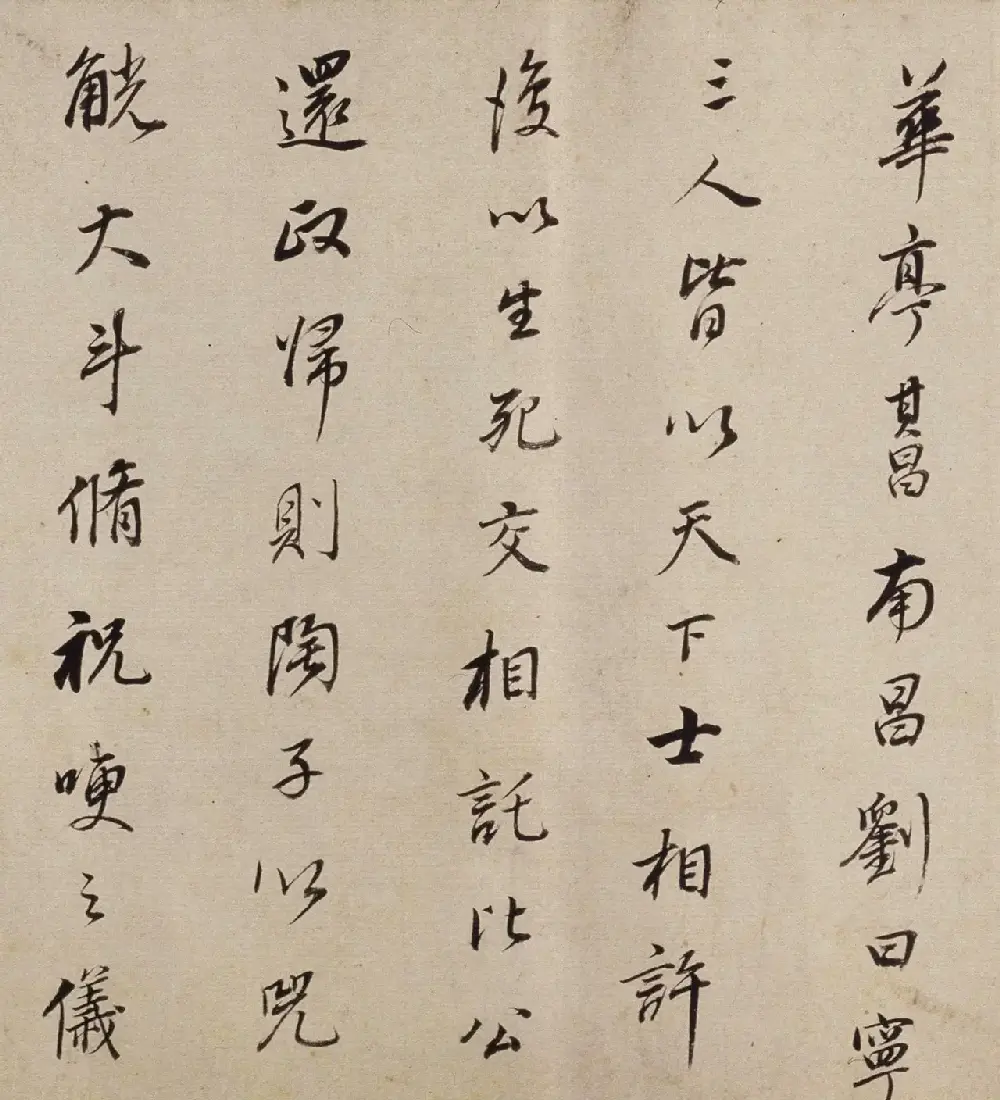 華亭其昌南昌劉曰寧
三人皆以天下士相許
後以生死交相託比公
還政歸則陶子以兕
觥大斗脩祝哽之儀